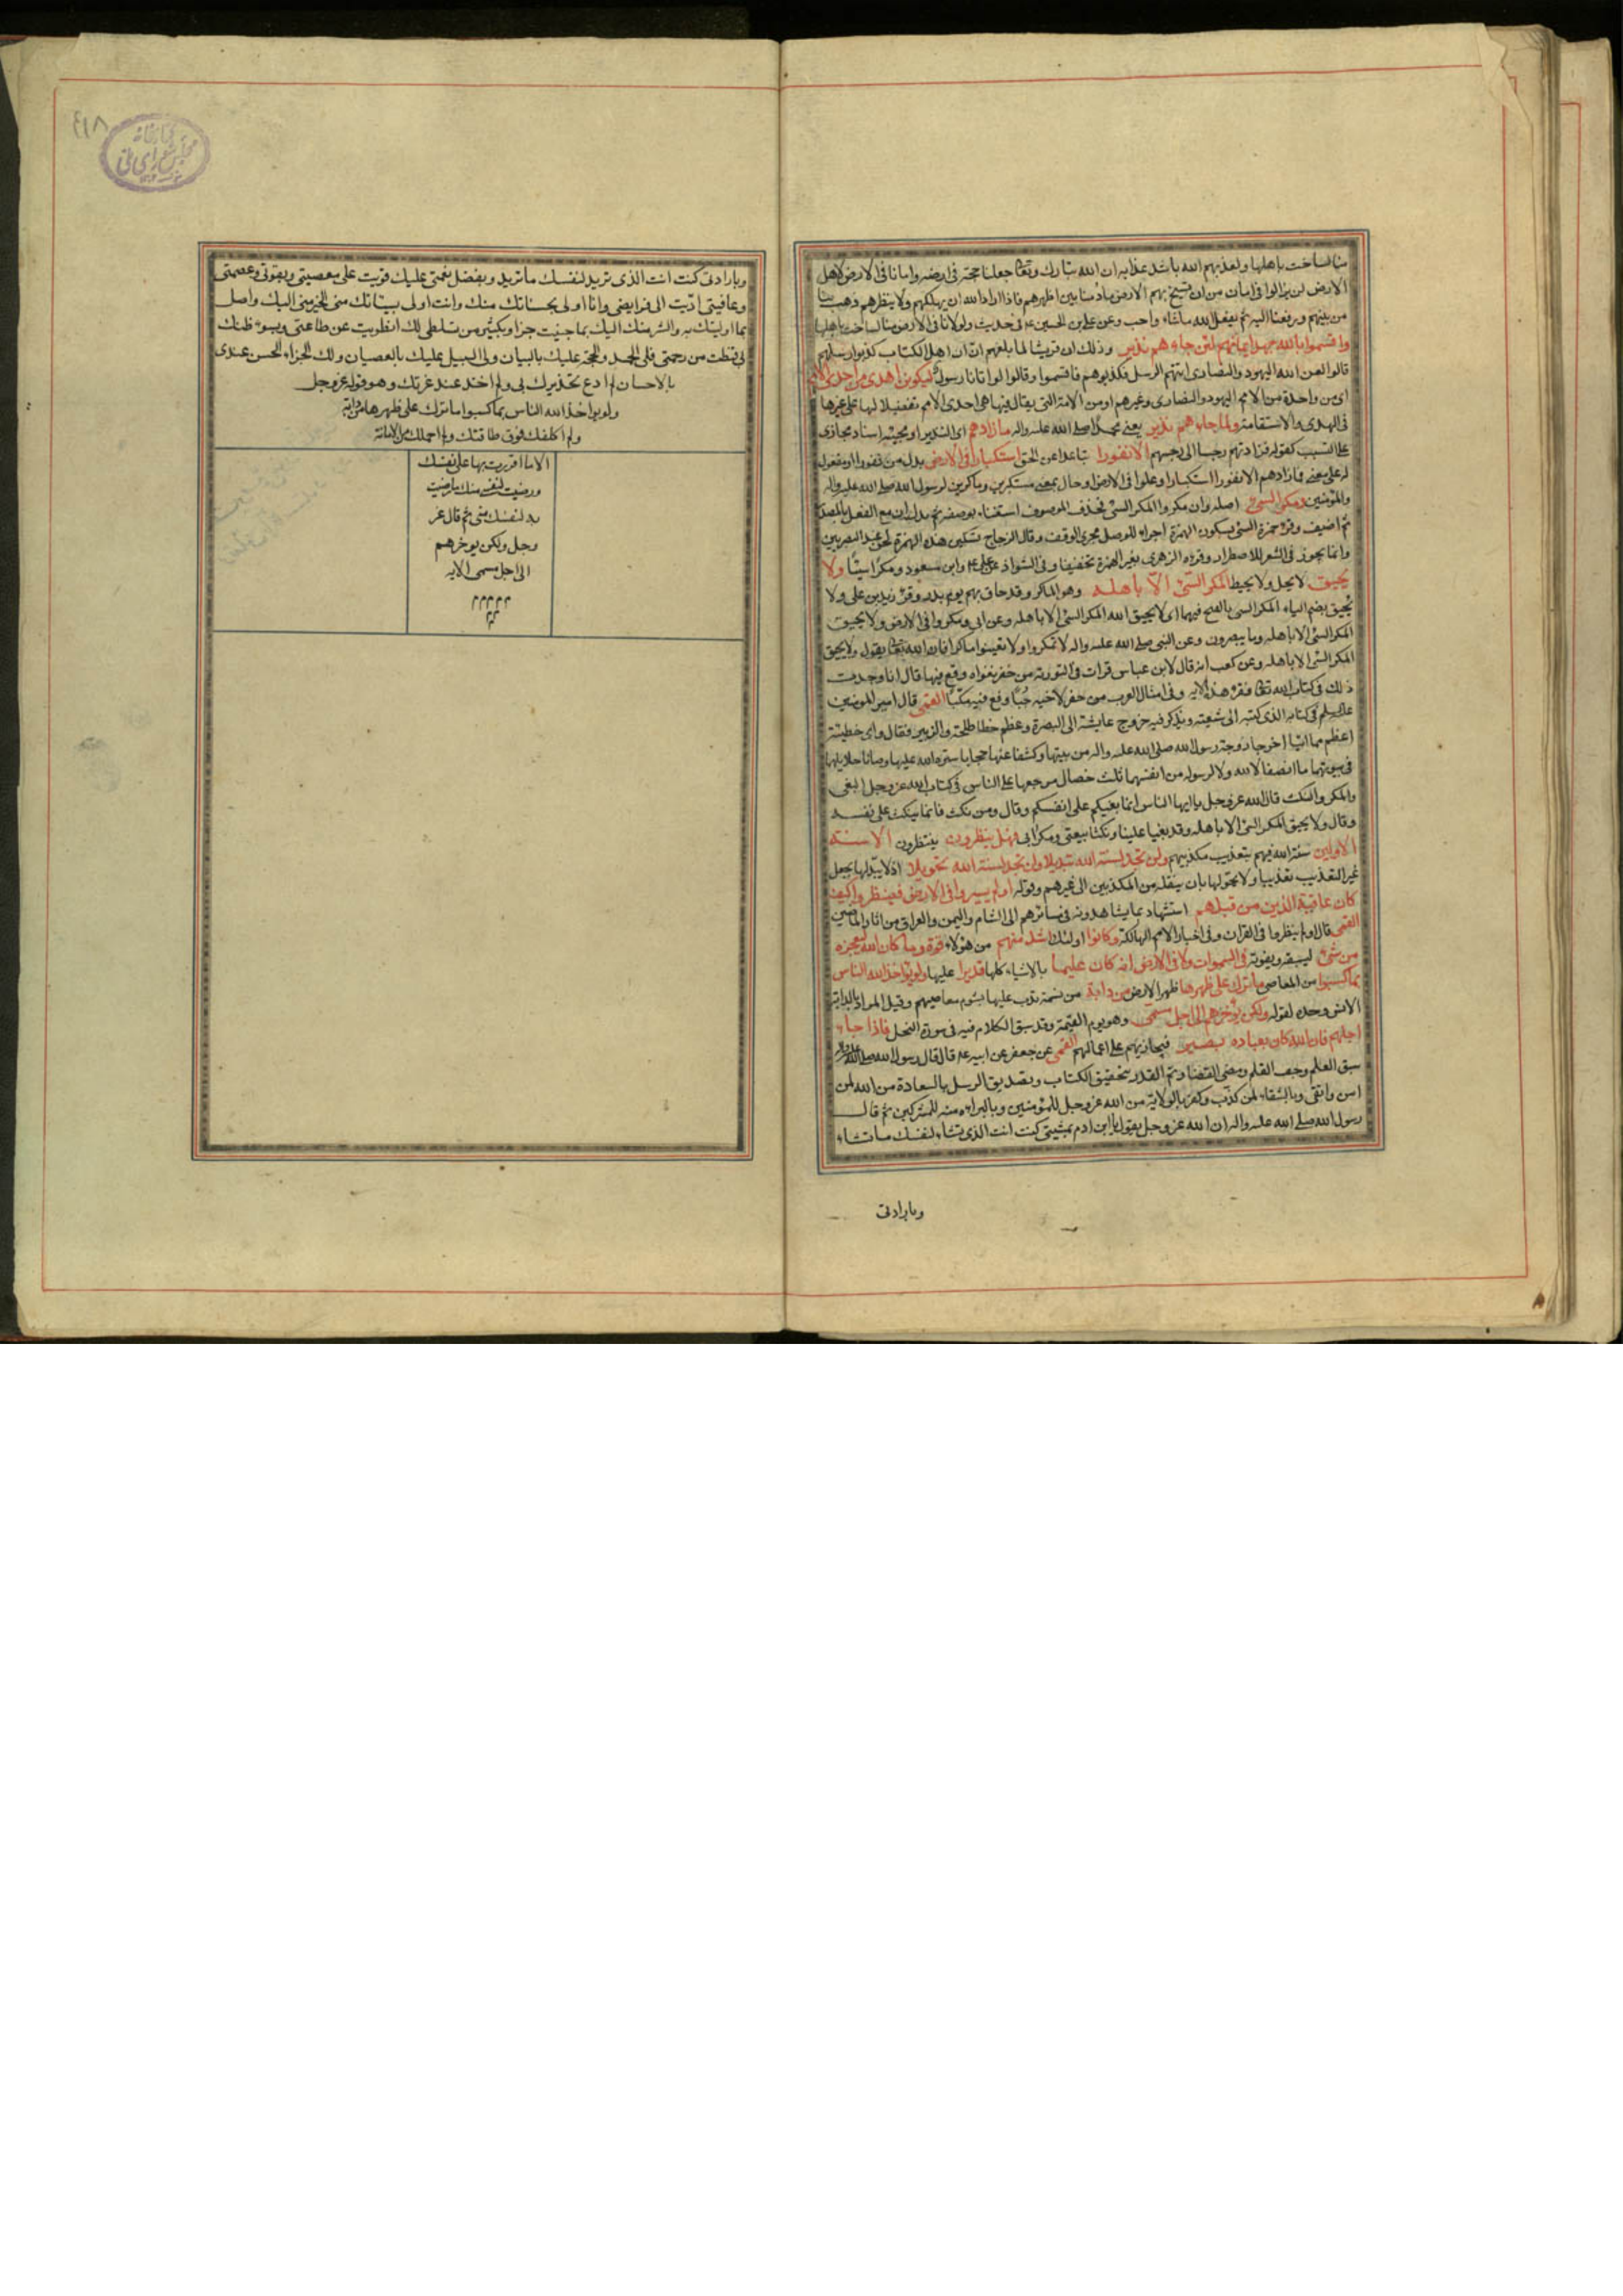 منا لساخت باهلها ولعذبهم الله باشد عذابه ان الله تبارك وتعالى جعلنا حجته فى ارضه وامانا فى الارض لاهل
الارض لن يزالوا فى امان من ان تسيخ بهم الارض مادمنا بين اظهرهم فاذا اراد الله ان يهلكهم ولا ينظرهم ذهب بنا
من بينهم ورفعنا اليه ثم يفعل الله ماشاء واحب وعن على بن الحسين ع فى حديث ولولا ما فى الارض منا لساخت باهلها
واقسموا بالله جهد ايمانهم لئن جاءهم نذير وذلك ان قريشا لما بلغهم ان اهل الكتاب كذبوا رسلهم
قالوا لعن الله اليهود والنصارى اتتهم الرسل فكذبوهم فاقسموا وقالوا لو اتانا رسول ليكونن اهدى من احدى الامم
اى من واحدة من الامم اليهود والنصارى وغيرهم او من الامة التى يقال فيها هى احدى الامم تفضيلا لها على غيرها
فى الهدى والاستقامة ولما جاءهم نذير يعنى محمدا صلى الله عليه واله ما زادهم اى النذير او مجيئه اسناد مجازى
على التسبب كقوله فزادتهم رجسا الى رجسهم الا نفورا تباعدا عن الحق استكبارا فى الارض بدل من نفورا او مفعول
له على معنى فما زادهم الا نفورا استكبارا وعلوا فى الارض او حال بمعنى مستكبرين وماكرين لرسول الله صلى الله عليه واله
والمؤمنين ومكر السيئ اصله وان مكروا المكر السيئ فحذف الموصوف استغناء بوصفه ثم بدل ان مع الفعل بالمصدر
ثم اضيف وقرء حمزة السيئ بسكون الهمزة اجراء للوصل مجرى الوقف وقال الزجاج تسكين هذه الهمزة لحن عند البصريين
وانما يجوز فى الشعر للاضطرار وقرءه الزهرى بغير الهمزة تخفيفا وفى الشواذ عن على ع وابن مسعود ومكرا سيئا ولا
يحيق لا يحل ولا يحيط المكر السيئ الا باهله وهو الماكر وقد حاق بهم يوم بدر وقرء زيد بن على ولا
يحيق بضم الياء المكر السيئ بالفتح فيهما اى لا يحيق الله المكر السيئ الا باهله وعن ابى ومكروا فى الارض ولا يحيق
المكر السيئ الا باهله وما يبصرون وعن النبى صلى الله عليه واله لا تمكروا ولا تعينوا ماكرا فان الله تعالى يقول ولا يحيق
المكر السيئ الا باهله وعن كعب انه قال لابن عباس قرات فى التورية من حفر مغواة وقع فيها قال انا وجدت
ذلك فى كتاب الله تعالى فقرء هذه الاية وفى امثال العرب من حفر لاخيه جبا وقع فيه مكبا القمى قال امير المؤمنين
عليه السلم فى كتابه الذى كتبه الى شيعته ويذكر فيه خروج عايشة الى البصرة وعظم خطا طلحة والزبير فقال واى خطيئة
اعظم مما اتيا اخرجا زوجة رسول الله صلى الله عليه واله من بيتها وكشفا عنها حجابا ستره الله عليها وصانا حلايلهما
فى بيوتهما ما انصفا لا لله ولا لرسوله من انفسهما ثلث خصال مرجعها على الناس فى كتاب الله عز وجل البغى
والمكر والنكث قال الله عز وجل يا ايها الناس انما بغيكم على انفسكم وقال ومن نكث فانما ينكث على نفسه
وقال ولا يحيق المكر السيئ الا باهله وقد بغيا علينا ونكثا بيعتى ومكرا بى فهل ينظرون ينتظرون الا سنة
الاولين سنة الله فيهم بتعذيب مكذبيهم ولن تجد لسنة الله تبديلا ولن تجد لسنة الله تحويلا اذ لا يبدلها بجعل
غير التعذيب تعذيبا ولا يحولها بان ينقله من المكذبين الى غيرهم وقوله اولم يسيروا فى الارض فينظروا كيف
كان عاقبة الذين من قبلهم استشهاد بما يشاهدونه فى مسائرهم الى الشام واليمن والعراق من اثار الماضين
القمى قال اولم ينظروا فى القران وفى اخبار الامم الهالكة وكانوا اولئك اشد منهم من هؤلاء قوة وما كان الله ليعجزه
من شئ ليسبقه ويفوته فى السموات ولا فى الارض انه كان عليما بالاشياء كلها قديرا عليها ولو يؤاخذ الله الناس
بما كسبوا من المعاصى ما ترك على ظهرها ظهر الارض من دابة من نسمة تدب عليها بشوم معاصيهم وقيل المراد بالدابة
الانس وحده لقوله ولكن يؤخرهم الى اجل مسمى وهو يوم القيمة وقد سبق الكلام فيه فى سورة النحل فاذا جاء
اجلهم فان الله كان بعباده بصيرا فيجازيهم على اعمالهم القمى عن جعفر عن ابيه ع قال قال رسول الله صلى الله عليه واله
سبق العلم وجف القلم ومضى القضاء وتم القدر بتحقيق الكتاب وتصديق الرسل بالسعادة من الله لمن
امن واتقى وبالشقاء لمن كذب وكفر بالولاية من الله عز وجل للمؤمنين وبالبراءة منه للمشركين ثم قال
رسول الله صلى الله عليه واله ان الله عز وجل يقول يا ابن ادم بمشيتى كنت انت الذى تشاء لنفسك ما تشاء
وبارادتى
وبارادتى كنت انت الذى تريد لنفسك ما تريد وبفضل نعمتى عليك قويت على معصيتى وبقوتى وعصمتى
وعافيتى اديت الى فرايضى وانا اولى بحسناتك منك وانت اولى بسيئاتك منى الخير منى اليك واصل
بما اوليتك به والشر منك اليك بما جنيت جزا وبكثير من تسلطى لك انطويت عن طاعتى وبسوء ظنك
بى قنطت من رحمتى فلى الحمد والحجة عليك بالبيان ولى السبيل عليك بالعصيان ولك الجزاء الحسن عندى
بالاحسان لم ادع تحذيرك بى ولم اخذ عند غرتك وهو قوله عز وجل
ولو يواخذ الله الناس بما كسبوا ما ترك على ظهرها من دابة
ولم اكلفك فوق طاقتك ولم احملك من الامانة
الا ما اقررت بها على نفسك
ورضيت لنفسى منك ما رضيت
به لنفسك منى ثم قال عز
وجل ولكن يوخرهم
الى اجل مسمى الايه
۴۱۸
كتابخانه
مجلس شوراى ملى